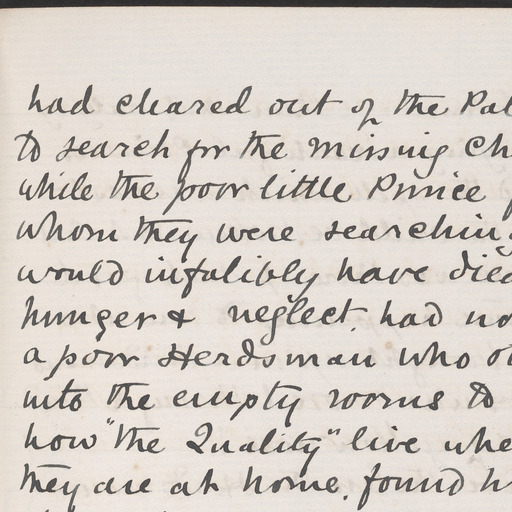 had cleared out of the Pal
to search for the missing Ch
while the poor little Prince
whom they were searching
would infalibly have died
hunger & neglect, had no
a poor Herdsman who
into the empty rooms to
how "the Quality" live whe
they are at home, found h